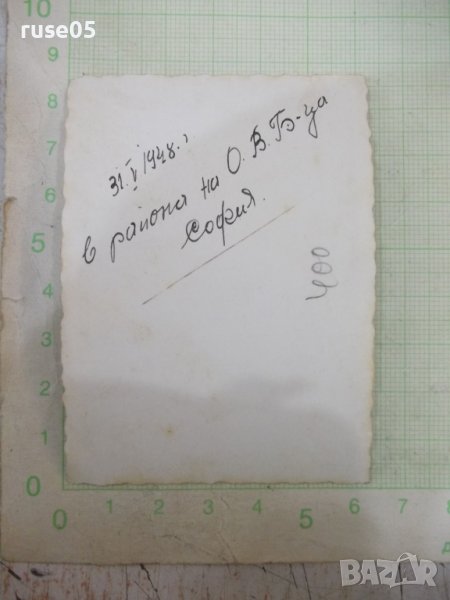 ruse05
31. V 1948 г.
в района на О. В. Б-ца
София.
400
10
9
8
7
6
5
4
3
2
1
0
0 1 2 3 4 5 6 7 8
BAZAR
.bg